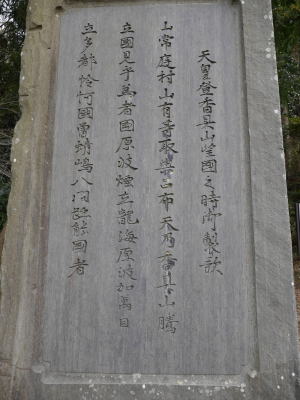 天皇登香具山望國之時御製歌
山常庭村山有等取與呂布天乃香具山騰
立國見乎為者國原波煙立龍海原波加萬目
立多都怜𪫧國曽蜻嶋八間跡能國者